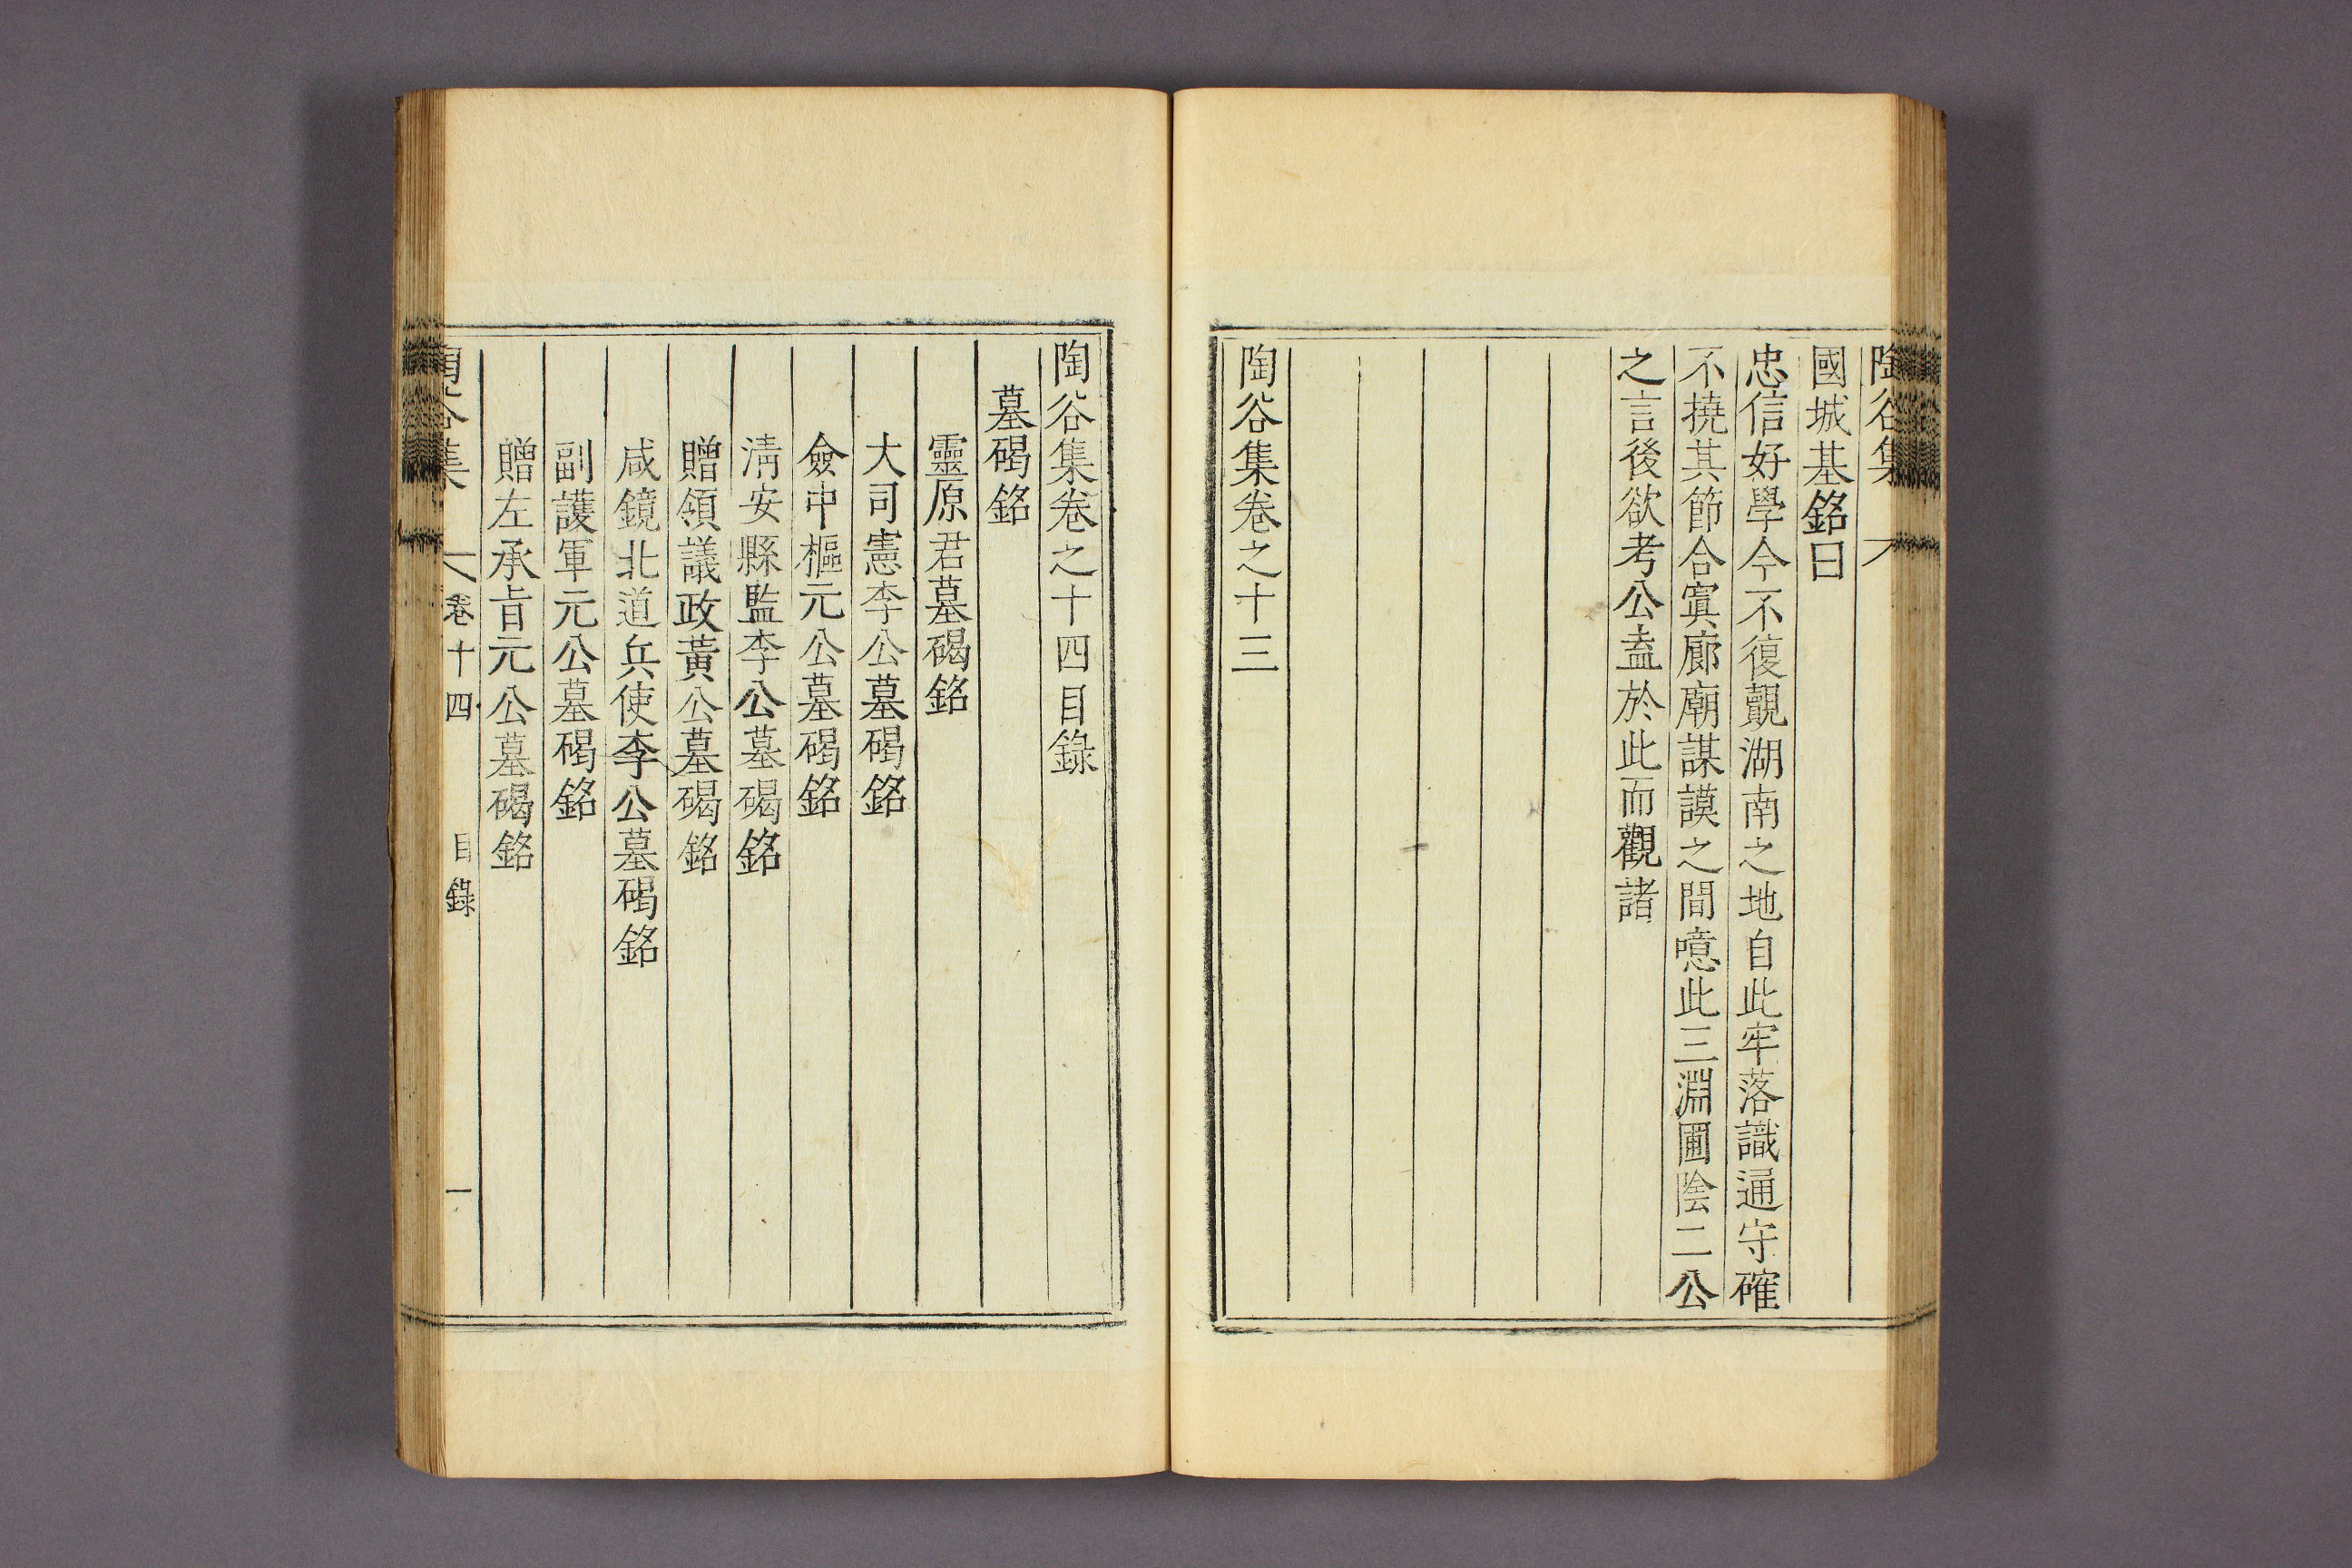 陶谷集
國城基銘曰
忠信好學今不復覿湖南之地自此牢落識通守確
不撓其節合寘廊廟謀謨之間噫此三淵圃陰二公
之言後欲考公盍於此而觀諸
陶谷集卷之十三
陶谷集卷之十四目錄
墓碣銘
靈原君墓碣銘
大司憲李公墓碣銘
僉中樞元公墓碣銘
淸安縣監李公墓碣銘
贈領議政黃公墓碣銘
咸鏡北道兵使李公墓碣銘
副護軍元公墓碣銘
贈左承旨元公墓碣銘
陶谷集 卷十四 目錄 一